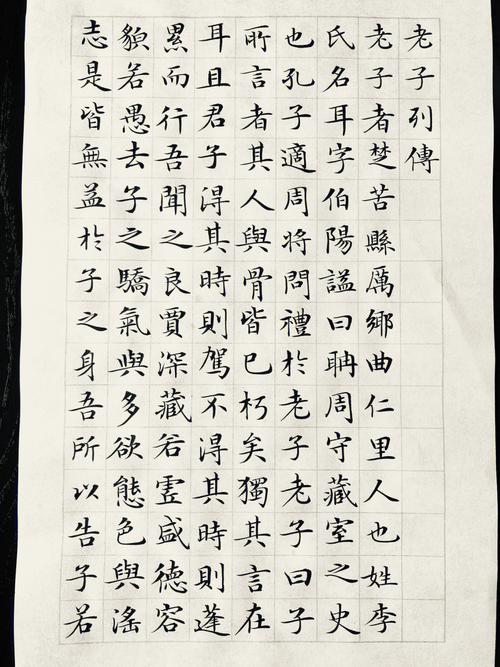 老子列傳
老子者楚苦縣厲鄉曲仁里人也姓李
氏名耳字伯陽謚曰聃周守藏室之史
也孔子適周將問禮於老子老子曰子
所言者其人與骨皆已朽矣獨其言在
耳且君子得其時則駕不得其時則蓬
累而行吾聞之良賈深藏若虛盛德容
貌若愚去子之驕氣與多欲態色與滛
志是皆無益於子之身吾所以告子若